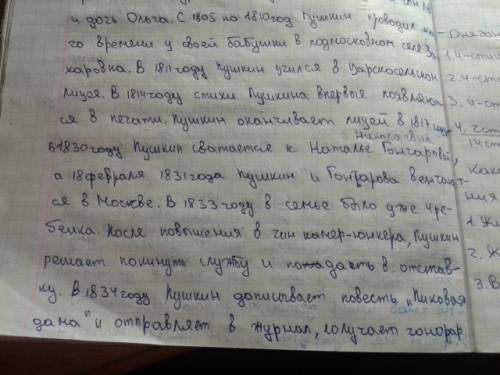 и дочь Ольга. С 1805 по 1810 год Пушкин проводил мно-
го времени у своей бабушки в подмосковном селе За-
харовка. В 1811 году Пушкин учился в Царскосельком
лицее. В 1814 году стихи Пушкина впервые появляют-
ся в печати. Пушкин оканчивает лицей в 1817 году
Николаевной
В 1830 году Пушкин сватается к Наталье Гончаровой,
а 18 февраля 1831 года Пушкин и Гончарова венчают-
ся в Москве. В 1833 году в семье было уже 4 ре-
бенка. После повышения в чин камер-юнкера, Пушкин
решает покинуть службу и подать в отстав-
ку. В 1834 году Пушкин дописывает повесть „Пиковая
дама" и отправляет в журнал, получает гонорар
1. 4-сти
2. 4-сти
3. 4-ст
4.
14 ст
Как
ния
1. Жи
2. Ж
3. В